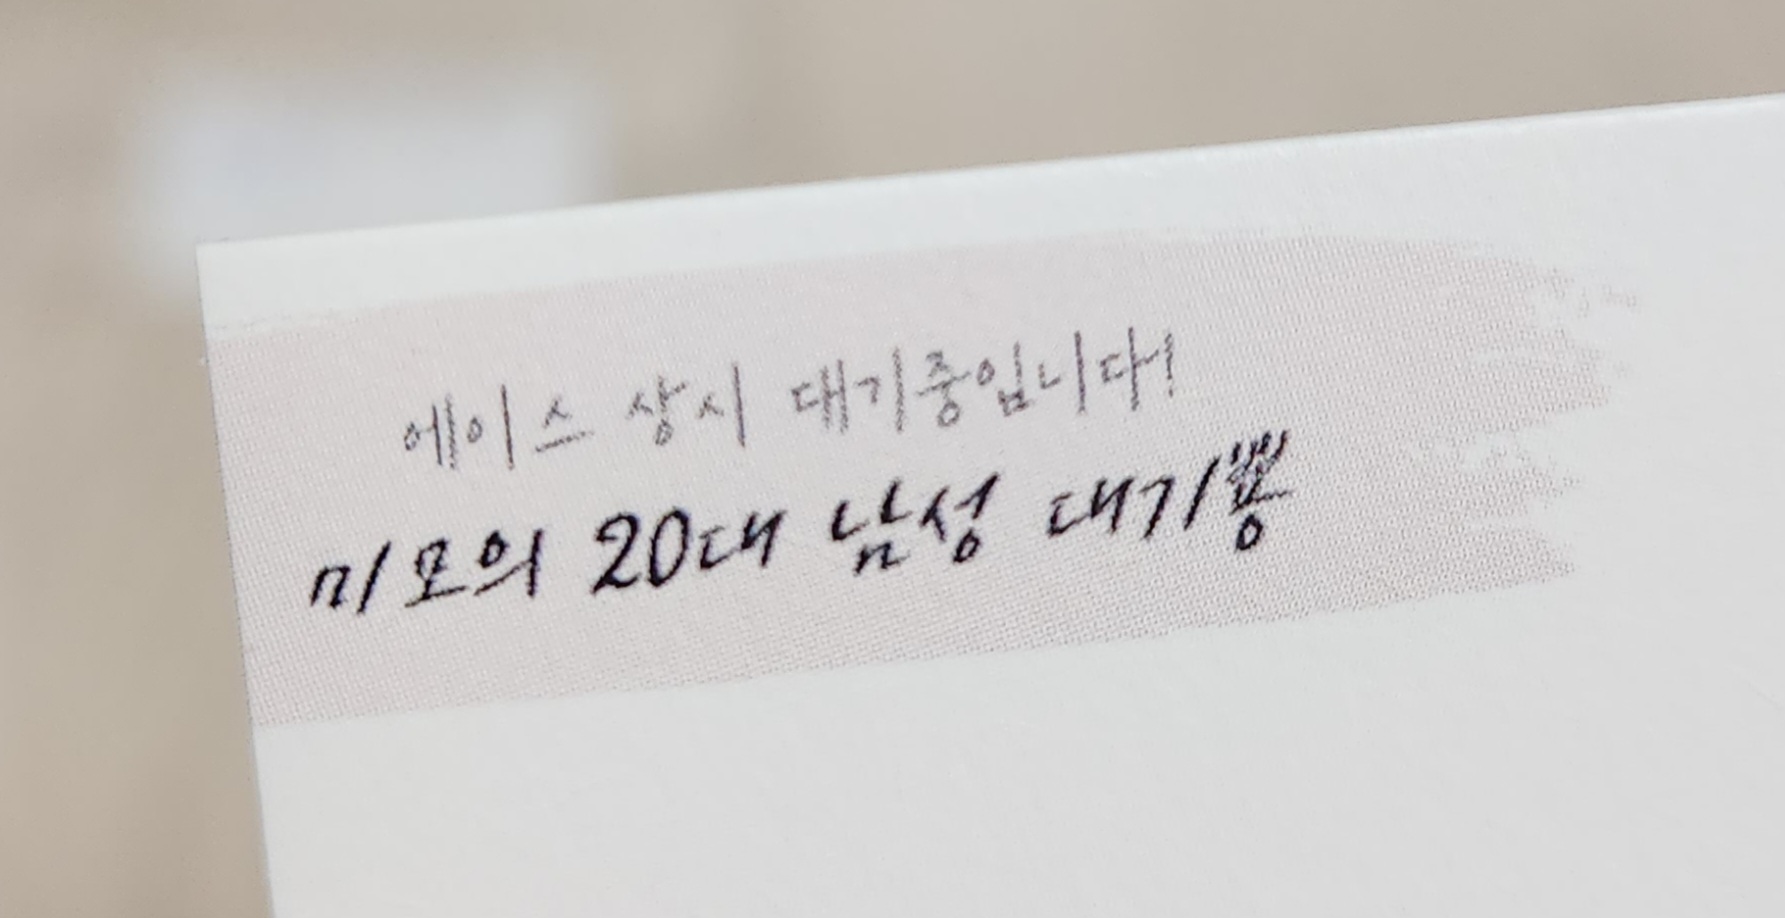 에이스 상시 대기중입니다!
미모의 20대 남성 대기뿅